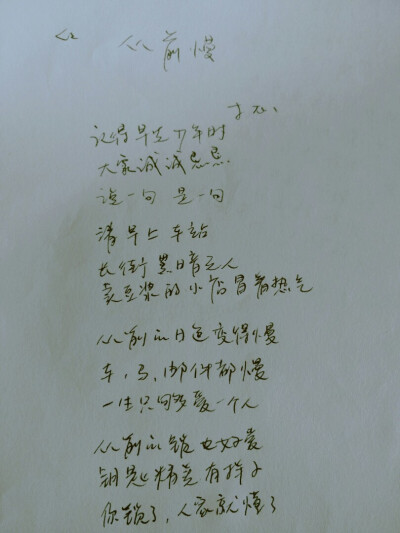 从前慢
木心
记得早先少年时
大家诚诚恳恳
说一句 是一句
清早上车站
长街黑暗无人
卖豆浆的小店冒着热气
从前的日色变得慢
车,马,邮件都慢
一生只够爱一个人
从前的锁也好看
钥匙精美有样子
你锁了,人家就懂了